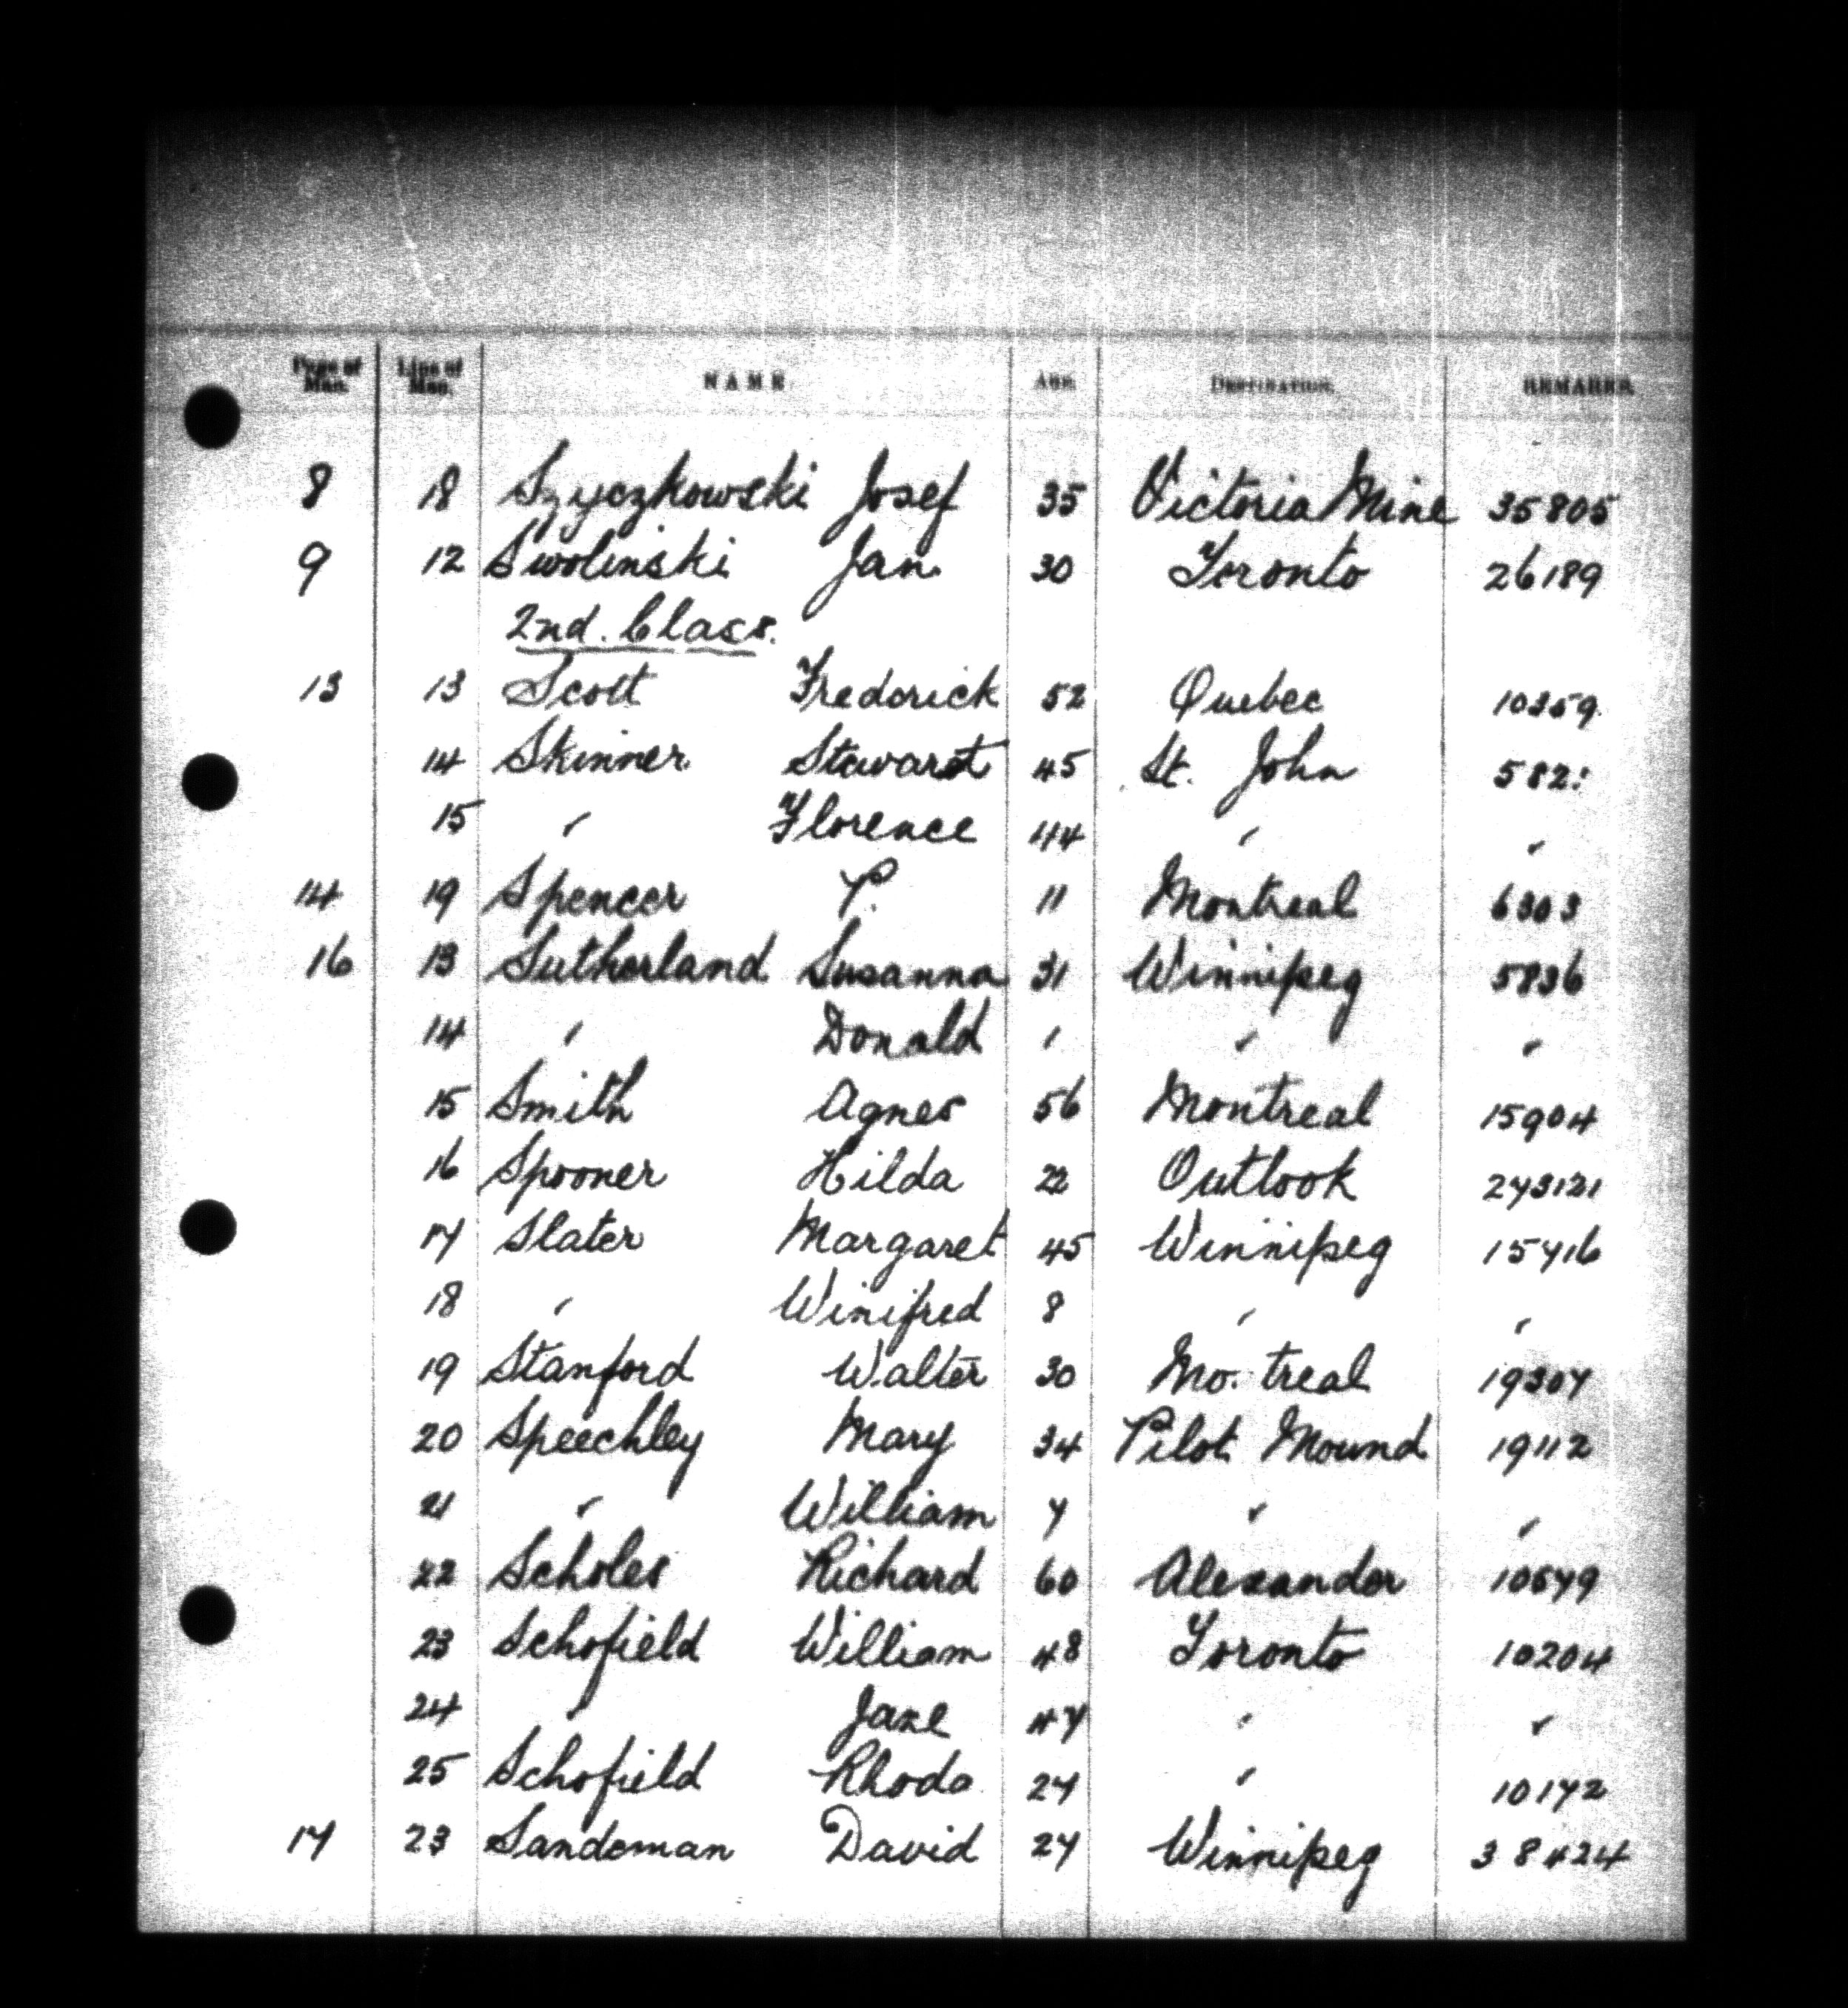 Page of Man. Line of Man. NAME AGE DESTINATION. REMARKS.
8 18 Szyczkowski Josef 35 Victoria Mine 35805
9 12 Swolinski Jan 30 Toronto 26189
2nd. Class.
13 13 Scott Frederick 52 Quebec 10359.
14 Skinner Stewart 45 St. John 582:
15 " Florence 44 " "
14 19 Spencer P. 11 Montreal 6303
16 13 Sutherland Susanna 31 Winnipeg 5836
14 " Donald 1 " "
15 Smith Agnes 56 Montreal 15904
16 Spooner Hilda 22 Outlook 273121
17 Slater Margaret 45 Winnipeg 15716
18 " Winifred 8 " "
19 Stanford Walter 30 Mo. treal 19307
20 Speechley Mary 34 Pilot Mound 19112
21 " William 7 " "
22 Scholes Richard 60 Alexander 10579
23 Schofield William 48 Toronto 10204
24 " Jane 47 " "
25 Schofield Rhoda 27 " 10172
17 23 Sandeman David 27 Winnipeg 38424